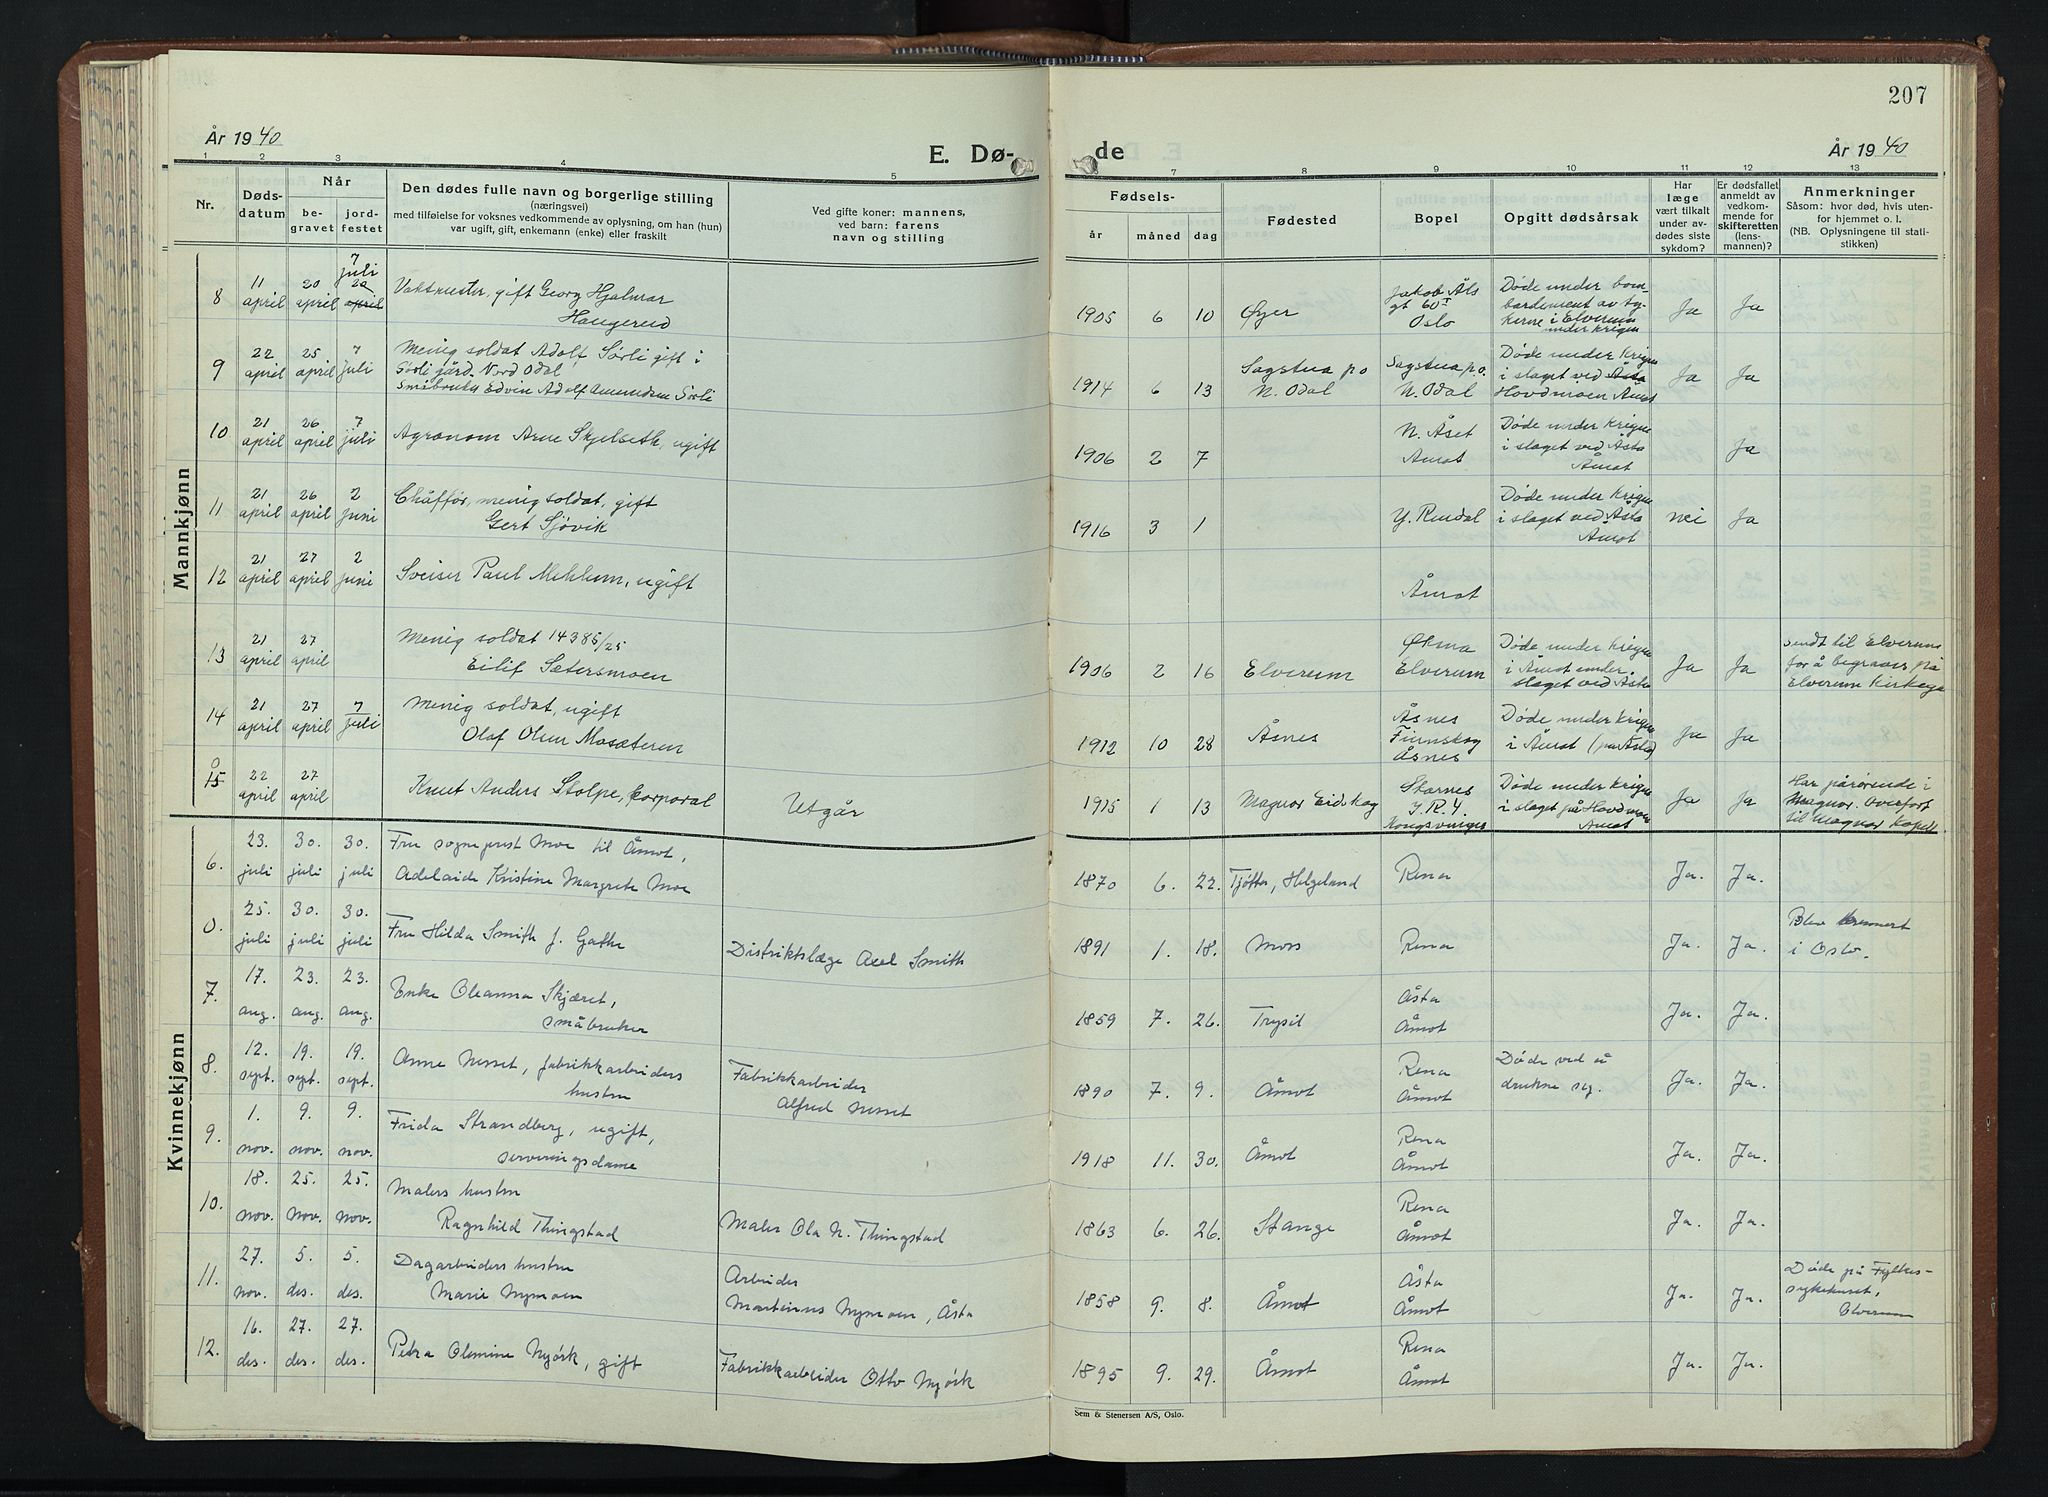 207
År 1940
E. Dø-
de
År 1940
1 2 3 4 5
7 8 9 10 11 12 13
Nr.
Døds-
datum
Når
be-
gravet
jord-
festet
Den dødes fulle navn og borgerlige stilling
(næringsvei)
med tilføielse for voksnes vedkommende av oplysning, om han (hun)
var ugift, gift, enkemann (enke) eller fraskilt
Ved gifte koner: mannens,
ved barn: farens
navn og stilling
Fødsels-
år
måned
dag
Fødested
Bopel
Opgitt dødsårsak
Har
læge
vært tilkalt
under av-
dødes siste
sykdom?
Er dødsfallet
anmeldt av
vedkom-
mende for
skifteretten
(lens-
mannen)?
Anmerkninger
Såsom: hvor død, hvis uten-
for hjemmet o. l.
(NB. Oplysningene til stati-
stikken)
Mannkjønn
8
11 april
20 april
7 juli
20 april
Vaktmester, gift Georg Hjalmar
Haugerud
1905 6 10
Øyer
Jakob Åls
gt 60
Oslo
Døde under bom-
bardement av ty-
kerne i Elverum
under krigen
Ja Ja
9
22 april
25 april
7 juli
Menig soldat Adolf Sørli gift i
Sørli gård. Nord Odal
Småbruker Edvin Adolf Amundsen Sørli
1914 6 13
Sagstua p.o
N. Odal
Sagstua p.o.
N. Odal
Døde under krigen
i slaget ved Åsta
Hovdmoen Åmot
Ja Ja
10
21 april
26 april
7 juli
Agronom Arne Skjelseth, ugift
1906 2 7
N. Åset
Åmot
Døde under krigen
i slaget ved Åsta
Åmot
Ja
11
21 april
26 april
2 juni
Chåffør, menig soldat, gift
Gert Sjøvik
1916 3 1
Y. Rendal
Døde under krigen
i slaget ved Åsta
Åmot
nei Ja
12
21 april
27 april
2 juni
Sveiser Paul Mehlum, ugift
Åmot
13
21 april
27 april
Menig soldat 14385/25
Eilif Sætersmoen
1906 2 16
Elverum
Øksna
Elverum
Døde under krigen
i Åmot under
slaget ved Åsta
Ja Ja
sendt til Elverum
for å begraves på
Elverum Kirkeg.
14
21 april
27 april
7 juli
Menig soldat, ugift
Olaf Olsen Mosæteren
1912 10 28
Åsnes
Åsnes
Finnskog
Åsnes
Døde under krigen
i Åmot (på Åsta)
Ja Ja
0
15
22 april
27 april
Knut Anders Stolpe, korporal
Utgår
1915 1 13
Magnor Eidskog
Starnes
J.R.4
Kongsvinger
Døde under krigen
i slaget på Hovdmoen
Åmot
Ja Ja
Har pårørende i
Magnor. Overført
til Magnor kapell.
Kvinnekjønn
6.
23. juli
30. juli
30. juli
Fru sogneprest Moe til Åmot,
Adelaide Kristine Margrete Moe
1870 6. 22.
Tjøtta, Helgeland
Rena
Ja. Ja.
0.
25. juli
30. juli
30. juli
Fru Hilda Smith f. Gathe
Distriktslæge Axel Smith
1891 1. 18.
Moss
Rena
Ja. Ja.
Blev kremert
i Oslo.
7.
17. aug.
23. aug.
23. aug.
Enke Oleanna Skjæret,
småbruker
1859 7. 26.
Trysil
Åsta
Åmot
Ja. Ja.
8.
12. sept.
19. sept.
19. sept.
Anne Nesset, fabrikkarbeiders
hustru
Fabrikkarbeider
Alfred Nesset
1890 7. 9.
Åmot
Rena
Åmot
Døde ved å
drukne seg.
Ja. Ja.
9.
1. nov.
9. nov.
9. nov.
Frida Strandberg, ugift,
serveringsdame
1918 11. 30.
Åmot
Rena
Åmot
Ja. Ja.
10.
18. nov.
25. nov.
25. nov.
Malers hustru
Ragnhild Thingstad
Maler Ola N. Thingstad
1863 6. 26.
Stange
Rena
Åmot
Ja. Ja.
11.
27. nov.
5. des.
5. des.
Dagarbeiders hustru
Marie Nymoen
Arbeider
Martinus Nymoen, Åsta
1858 9. 8.
Åmot
Åsta
Åmot
Ja. Ja.
Døde på Fylkes-
sykehuset,
Elverum
12.
16. des.
27. des.
27. des.
Petra Olemine Nyørk, gift
Fabrikkarbeider Otto Nyørk
1895 9. 29.
Åmot
Rena
Åmot
Ja. Ja.
Sem & Stenersen A/S, Oslo.